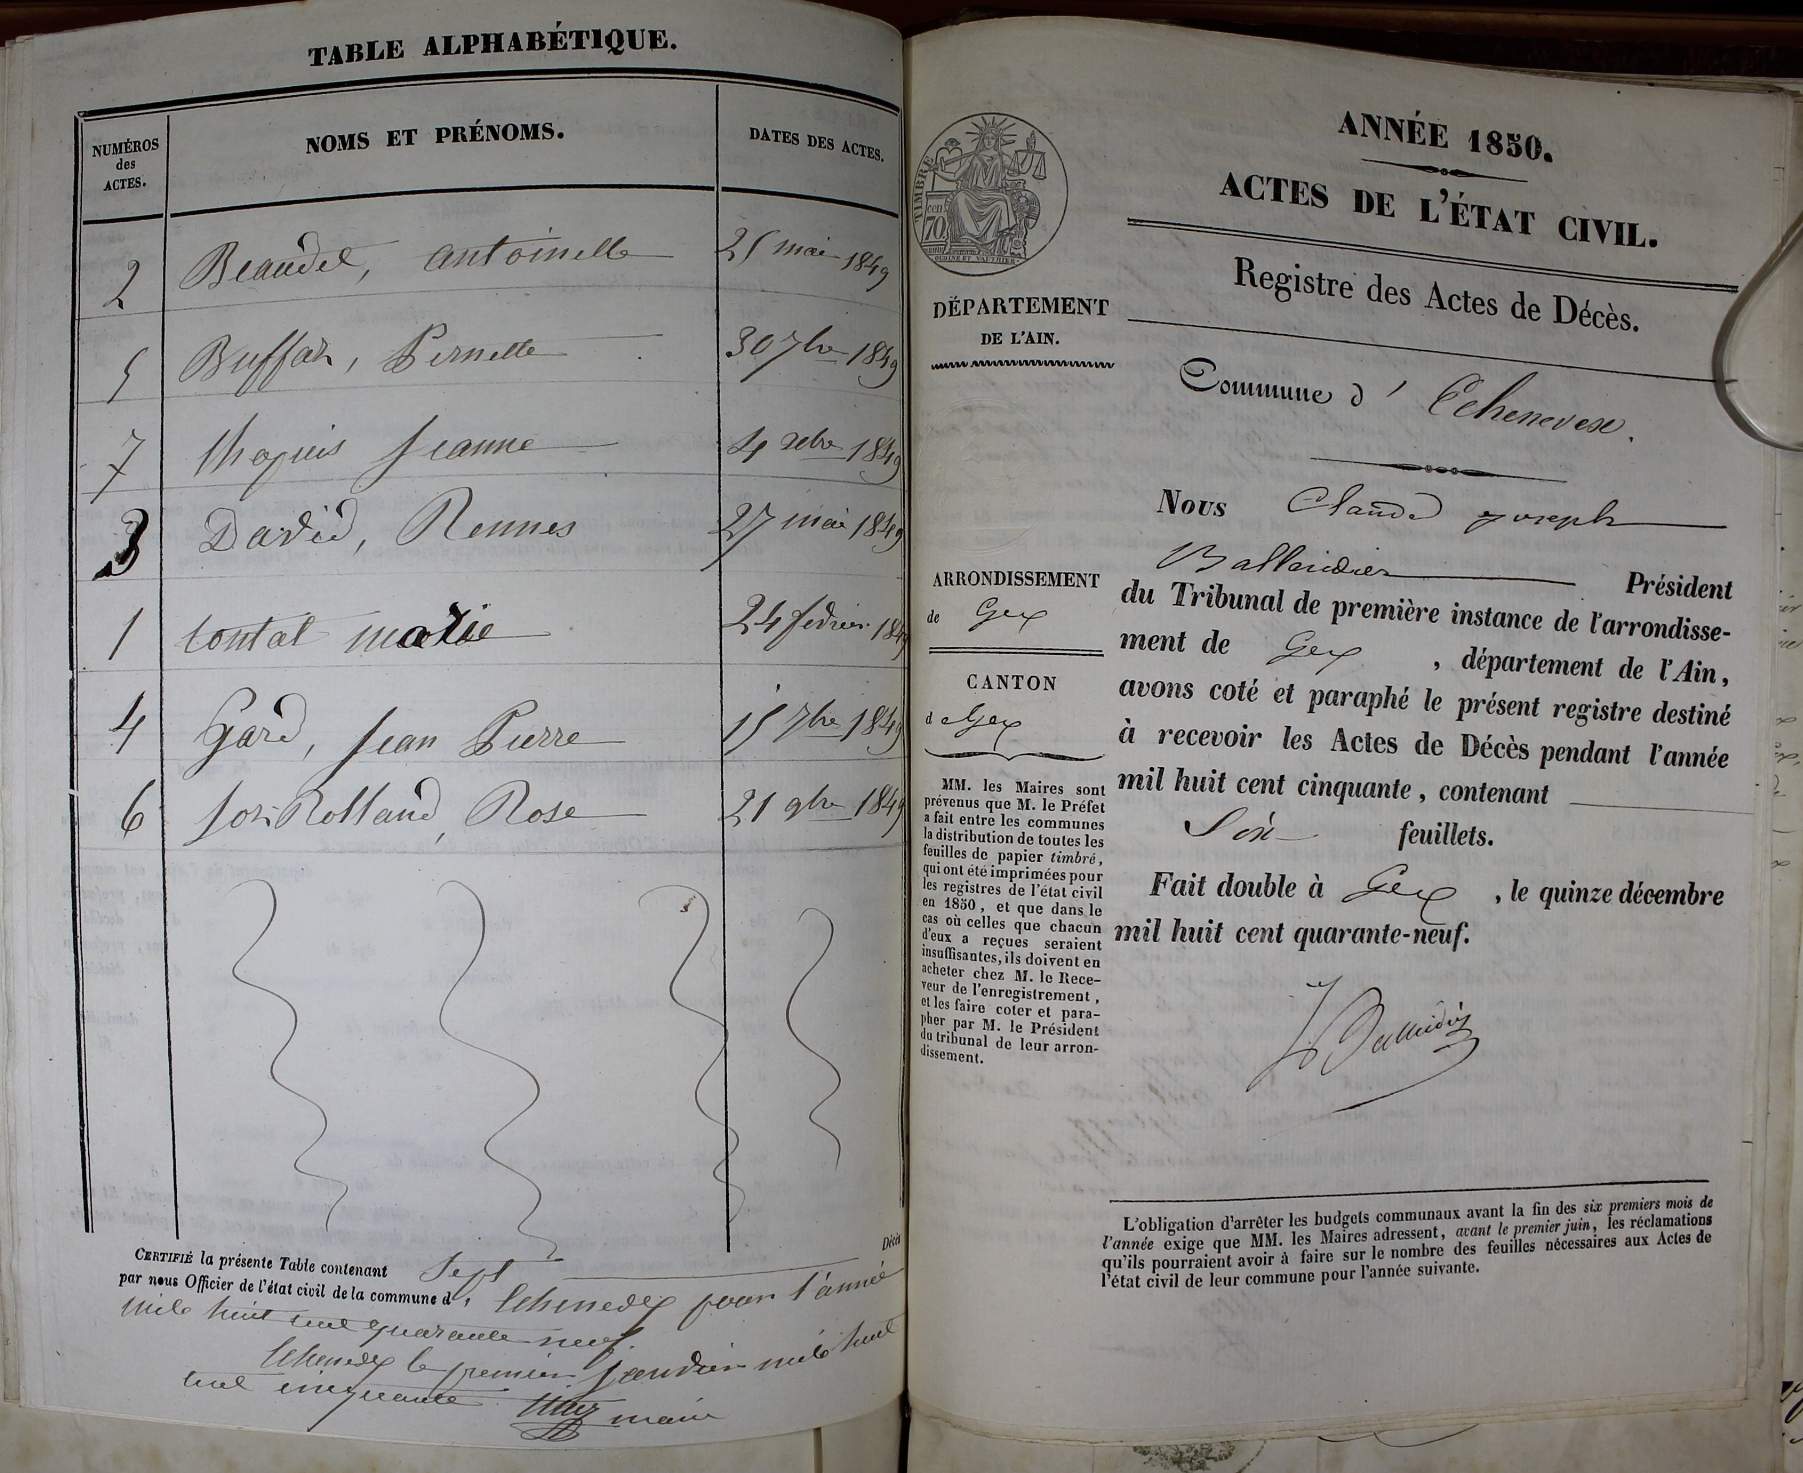 TABLE ALPHABÉTIQUE.
NUMÉROS des ACTES. NOMS ET PRÉNOMS. DATES DES ACTES.
2 Beaudet, antoinette 25 mai 1849
5 Buffat, Pernette 30 7bre 1849
7 Chapuis Jeanne 4 xbre 1849
3 David, Rennes 27 mai 1849
1 Contat marie 24 février 1849
4 Gard, Jean Pierre 15 7bre 1849
6 Rolland, Rose 21 9bre 1849
CERTIFIÉ la présente Table contenant Sept Décès
par nous Officier de l'état civil de la commune d' Echenevex pour l'année
mile huit cent quarante neuf.
Echenevex le premier Janvier mile huit
cent cinquante maire
TIMBRE
70 cen
OUDINE ET VAUTHIER
DÉPARTEMENT
DE L'AIN.
ARRONDISSEMENT
de Gex
CANTON
de Gex
MM. les Maires sont
prévenus que M. le Préfet
a fait entre les communes
la distribution de toutes les
feuilles de papier timbré,
qui ont été imprimées pour
les registres de l'état civil
en 1850, et que dans le
cas où celles que chacun
d'eux a reçues seraient
insuffisantes, ils doivent en
acheter chez M. le Rece-
veur de l'enregistrement,
et les faire coter et para-
pher par M. le Président
du tribunal de leur arron-
dissement.
ANNÉE 1850.
ACTES DE L'ÉTAT CIVIL.
Registre des Actes de Décès.
Commune d' Echenevex.
Nous Claude Joseph
Balleidier Président
du Tribunal de première instance de l'arrondisse-
ment de Gex, département de l'Ain,
avons coté et paraphé le présent registre destiné
à recevoir les Actes de Décès pendant l'année
mil huit cent cinquante, contenant
Six feuillets.
Fait double à Gex, le quinze décembre
mil huit cent quarante-neuf.
Balleidier
L'obligation d'arrêter les budgets communaux avant la fin des six premiers mois de
l'année exige que MM. les Maires adressent, avant le premier juin, les réclamations
qu'ils pourraient avoir à faire sur le nombre des feuilles nécessaires aux Actes de
l'état civil de leur commune pour l'année suivante.